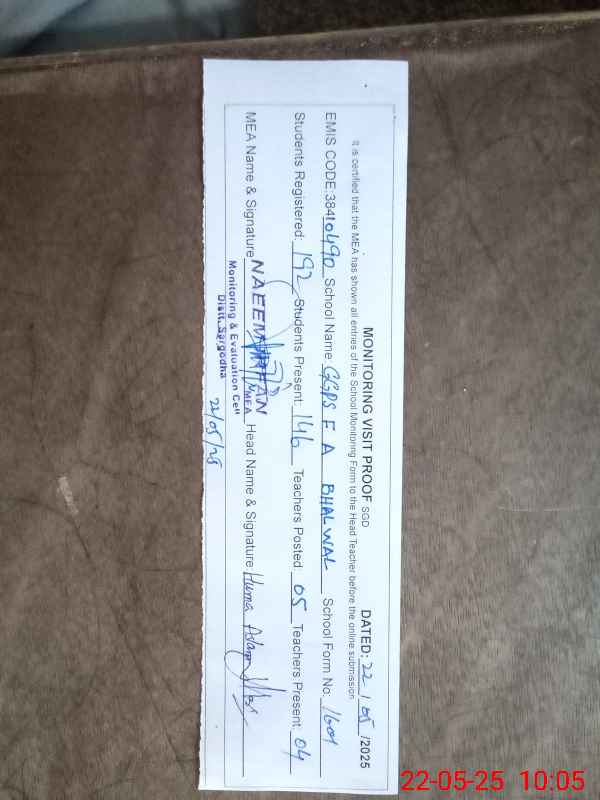 MONITORING VISIT PROOF SGD DATED: 22 / 05 /2025
It is certified that the MEA has shown all entries of the School Monitoring Form to the Head Teacher before the online submission
EMIS CODE:38410490 School Name GGPS F A BHALWAL School Form No. 1601
Students Registered: 192 Students Present: 146 Teachers Posted 05 Teachers Present: 04
MEA Name & Signature NAEEM IRFAN MEA Head Name & Signature Huma
Monitoring & Evaluation Cell
Distt. Sargodha
22/05/25
22-05-25 10:05